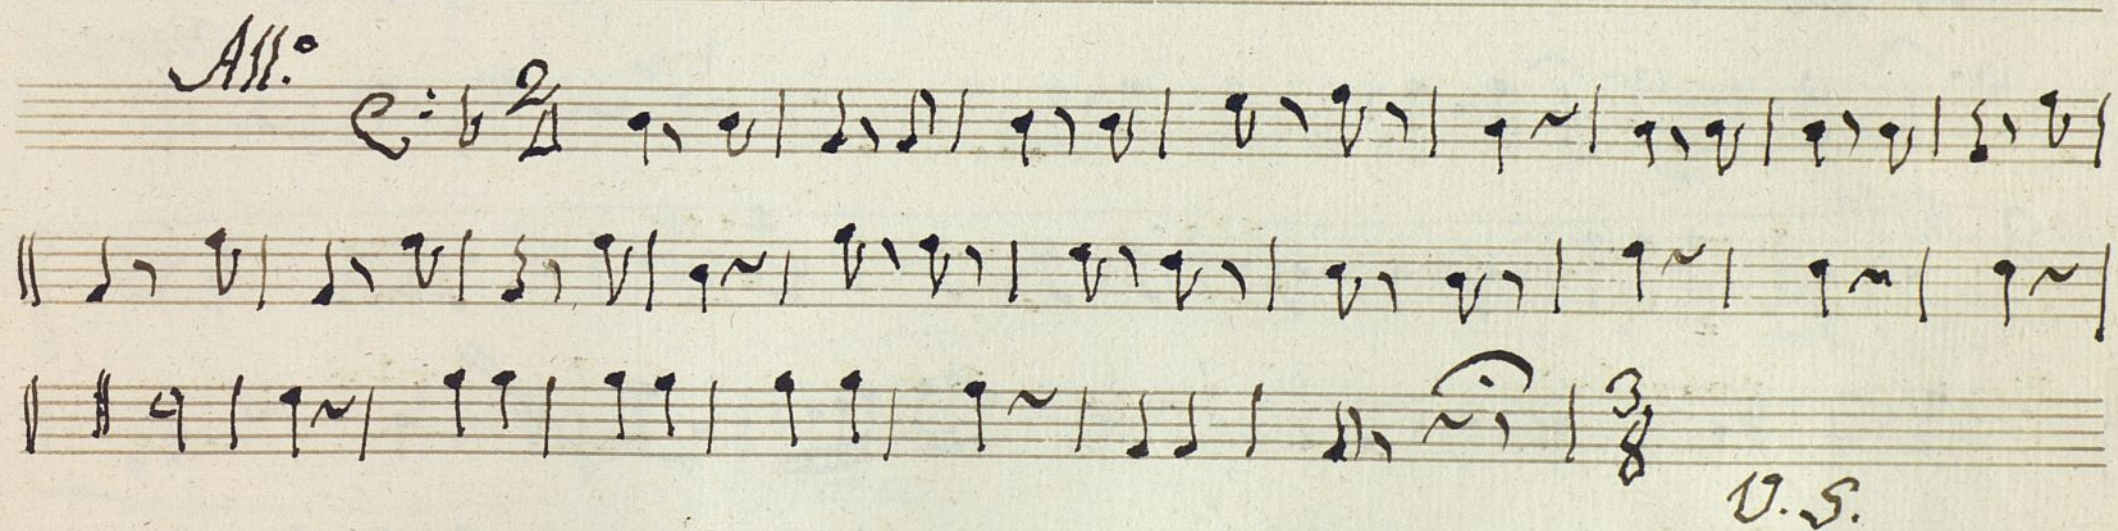 All:o
2/4
3/8
V. S.